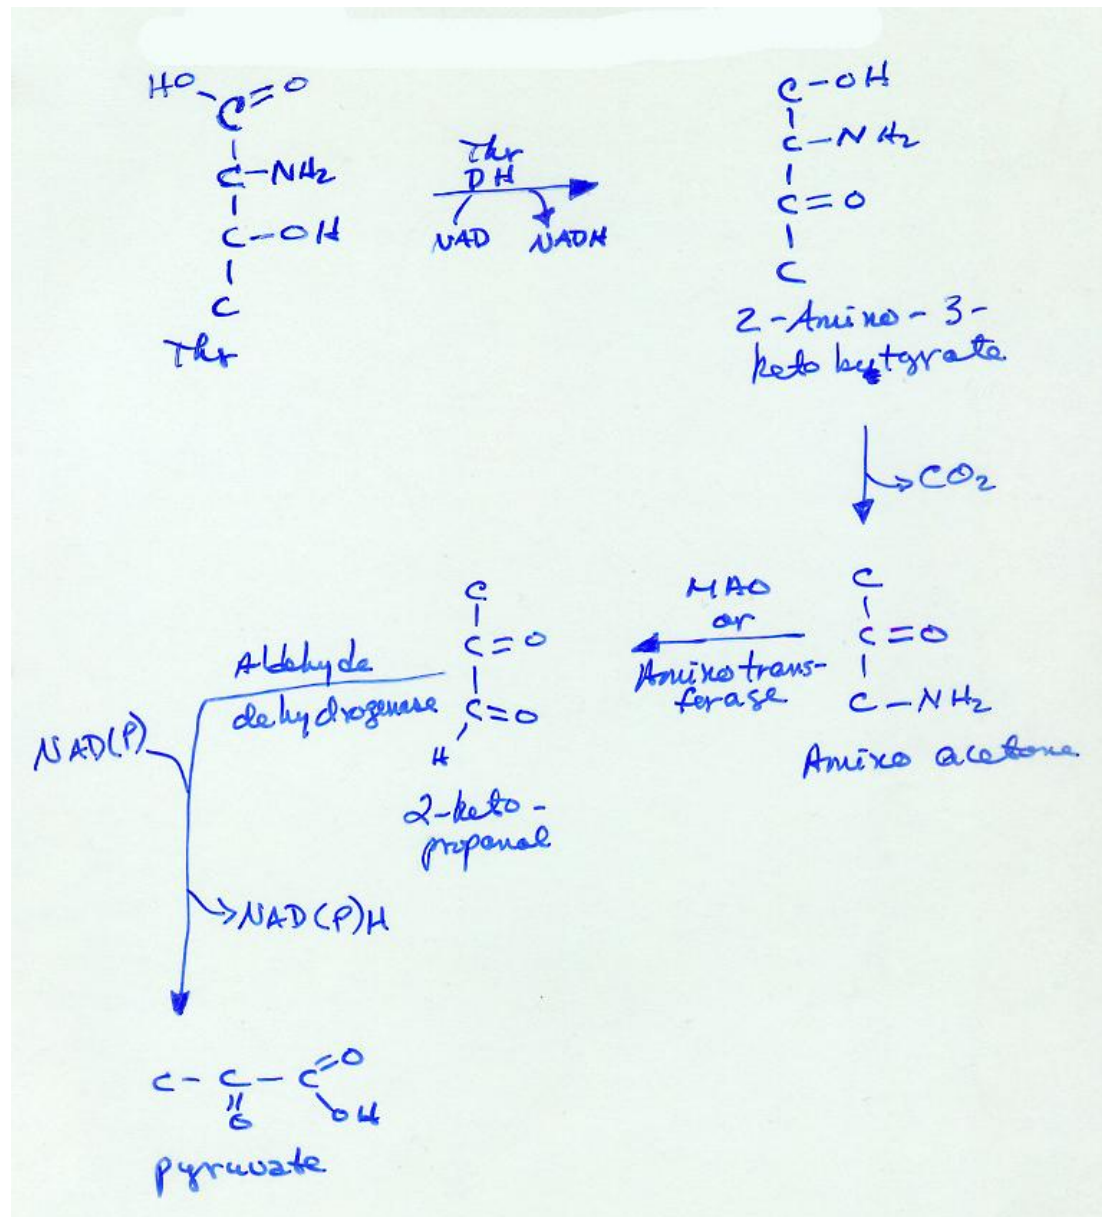 HO
C=O
C-NH2
C-OH
C
Thr
Thr
DH
NAD NADH
C-OH
C-NH2
C=O
C
2-Amino-3-
keto butyrate
CO2
C
C=O
C-NH2
Amino acetone
MAO
or
Aminotrans-
ferase
C
C=O
C=O
H
2-keto-
propanal
Aldehyde
dehydrogenase
NAD(P)
NAD(P)H
C-C-C=O
O OH
pyruvate